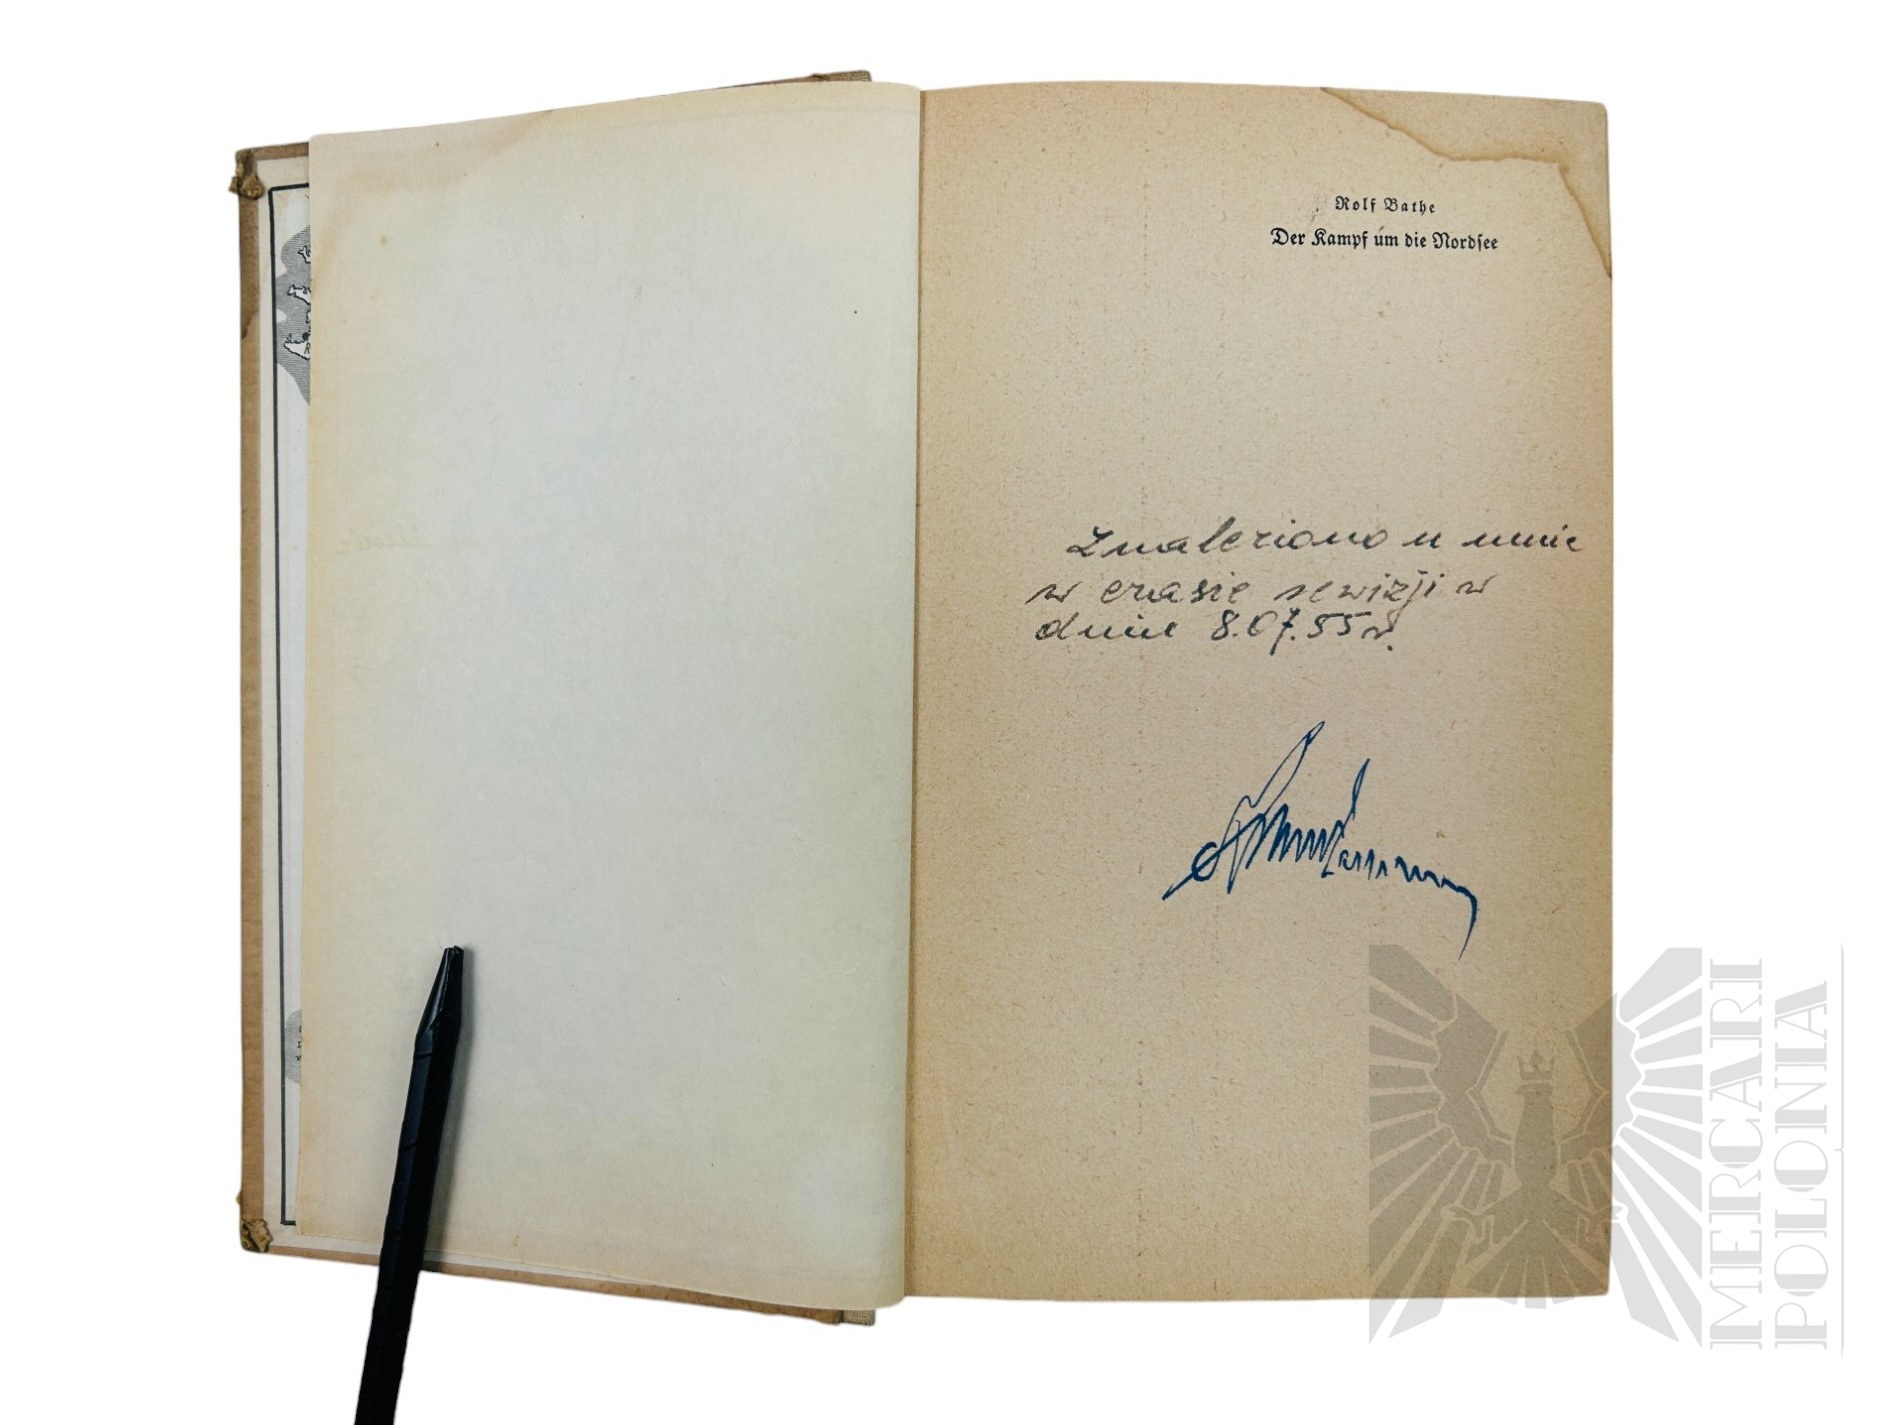 Rolf Bathe
Der Kampf um die Nordsee
Znaleziono u mnie
w czasie rewizji w
dniu 8.07.55 r.
MERCARI
POLONIA